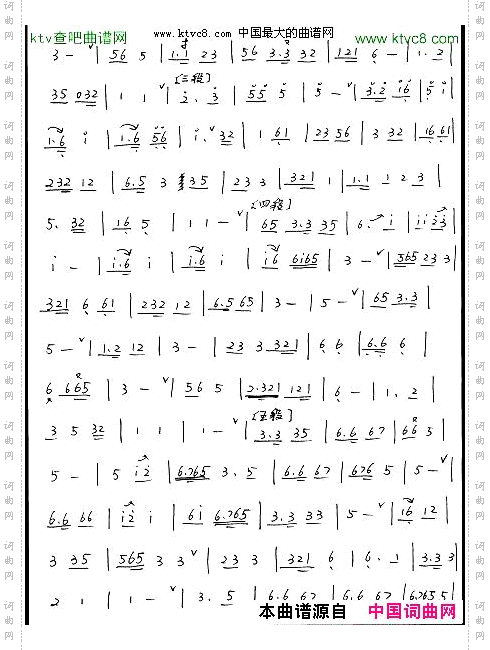 ktv查吧曲谱网 www.ktvc8.com 中国最大的曲谱网 www.ktvc8.com
3 - ∨ | 56 5 | 1.1 23 | 56 3.3 32 | 121 6 - | 1. 2 |
[三段]
35 032 | 1 1 ∨ | 2. 3 | 55 5 | 5 - ∨ | 3.2 16 | 5 1 |
1.6 i | 1.6 56 | i. 32 | 1 61 | 23 56 | 3 32 | 16 61 |
232 12 | 6.5 3 | 35 | 23 3 | 321 1 | 1.1 1 2 3 |
[四段]
5. 32 | 16 5 | 1 1 - ∨ | 65 3.3 35 | 6. i | ii 23 |
i - | i.6 i | i.6 i | i6 6165 | 3 - ∨ | 565 23 3 |
321 6 61 | 232 12 | 6.5 65 | 3 - | 5 - ∨ | 65 3.3 |
5 - ∨ | 1.2 12 | 3 - | 23 3 321 | 6 6 | 6.6 6 |
6 665 | 3 - ∨ | 56 5 | 2.321 121 | 6 - | 1. 2 |
[五段]
3 5 32 | 1 1 | 1 - ∨ | 3.3 35 | 6.6 67 | 66 3 |
5 - | 5 i2 | 6.765 3. 5 | 6.6 67 | 676 5 | 5 - ∨ |
6.6 66 | i2 i | 6i 6.765 | 3.3 33 | 5 - ∨ | i6 12 |
3 35 | 565 3 3 ∨ | 23 3 | 321 6 | 6. 1 | 3.3 3
2 1 | 1 - ∨ | 3. 5 | 6.6 67 | 6.6 67 | 6.765 5 |
本曲谱源自 中国词曲网
词曲网